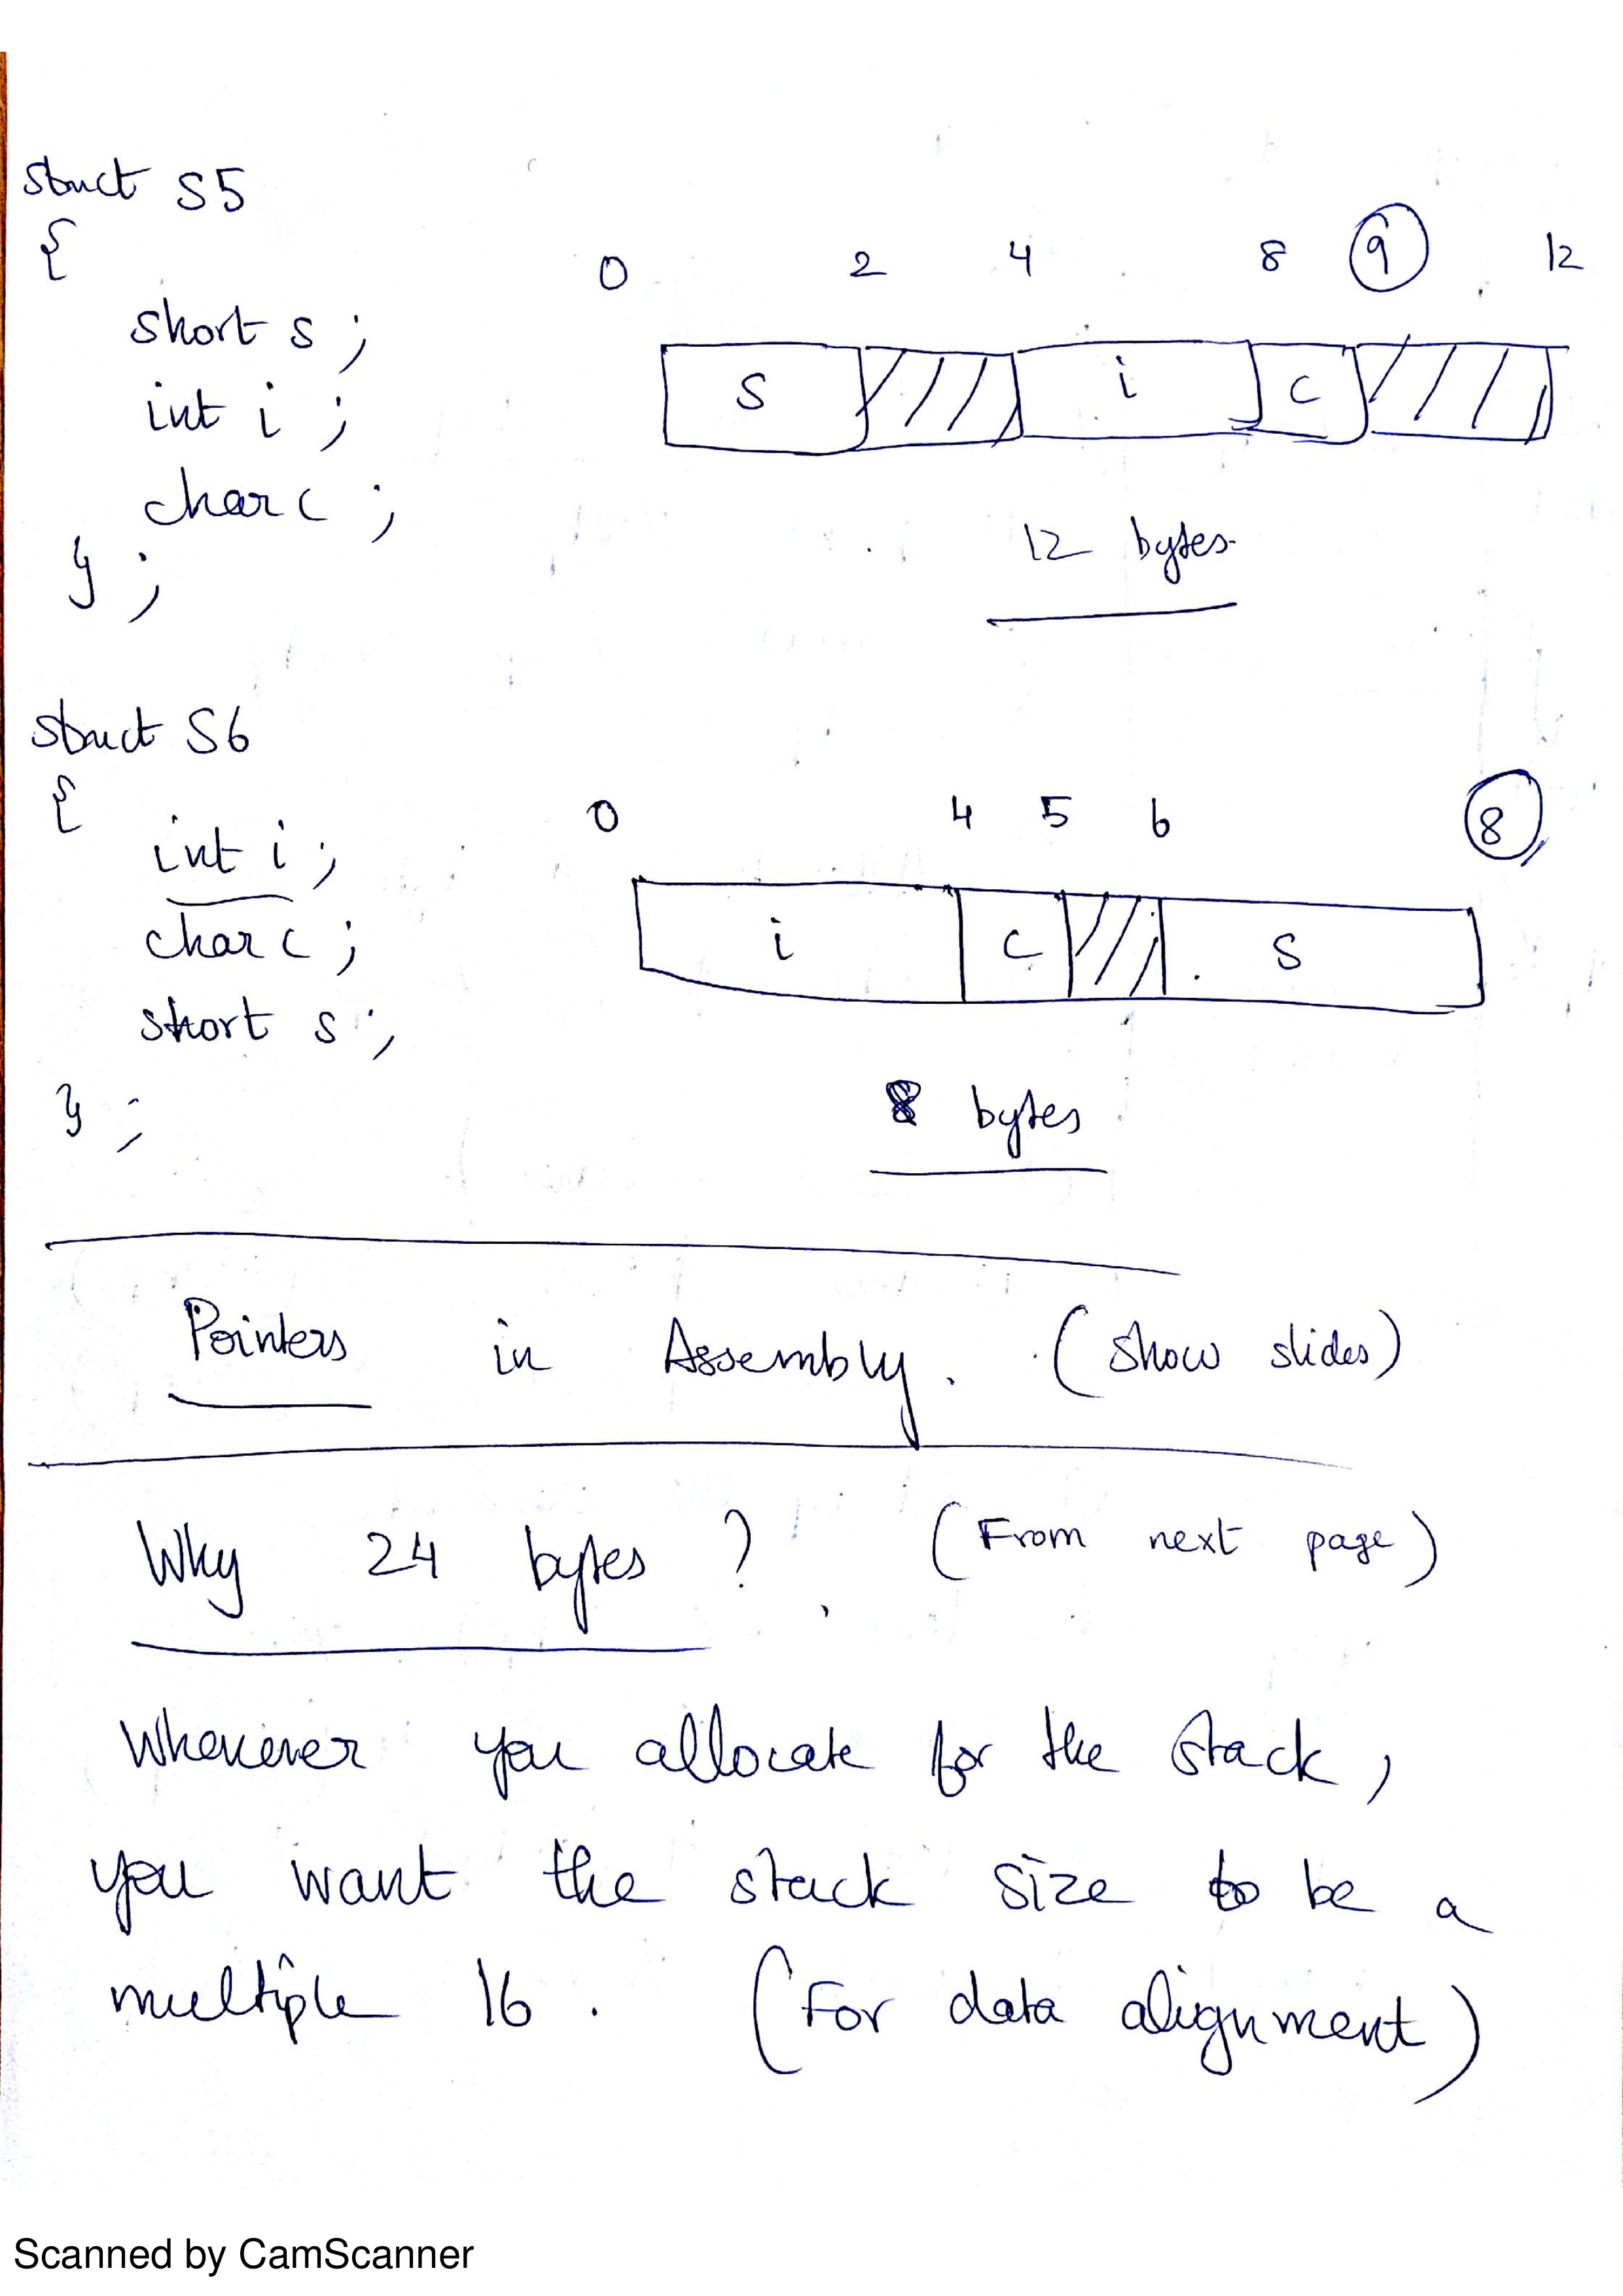 struct S5
{
short s ;
int i ;
char c ;
} ;
0 2 4 8 9 12
S i C
12 bytes
struct S6
{
int i ;
char c ;
short s ;
} ;
0 4 5 6 8
i C S
8 bytes
Pointers in Assembly. (Show slides)
Why 24 bytes ? (From next page)
Whenever you allocate for the stack,
you want the stack size to be a
multiple 16 . (For data alignment)
Scanned by CamScanner